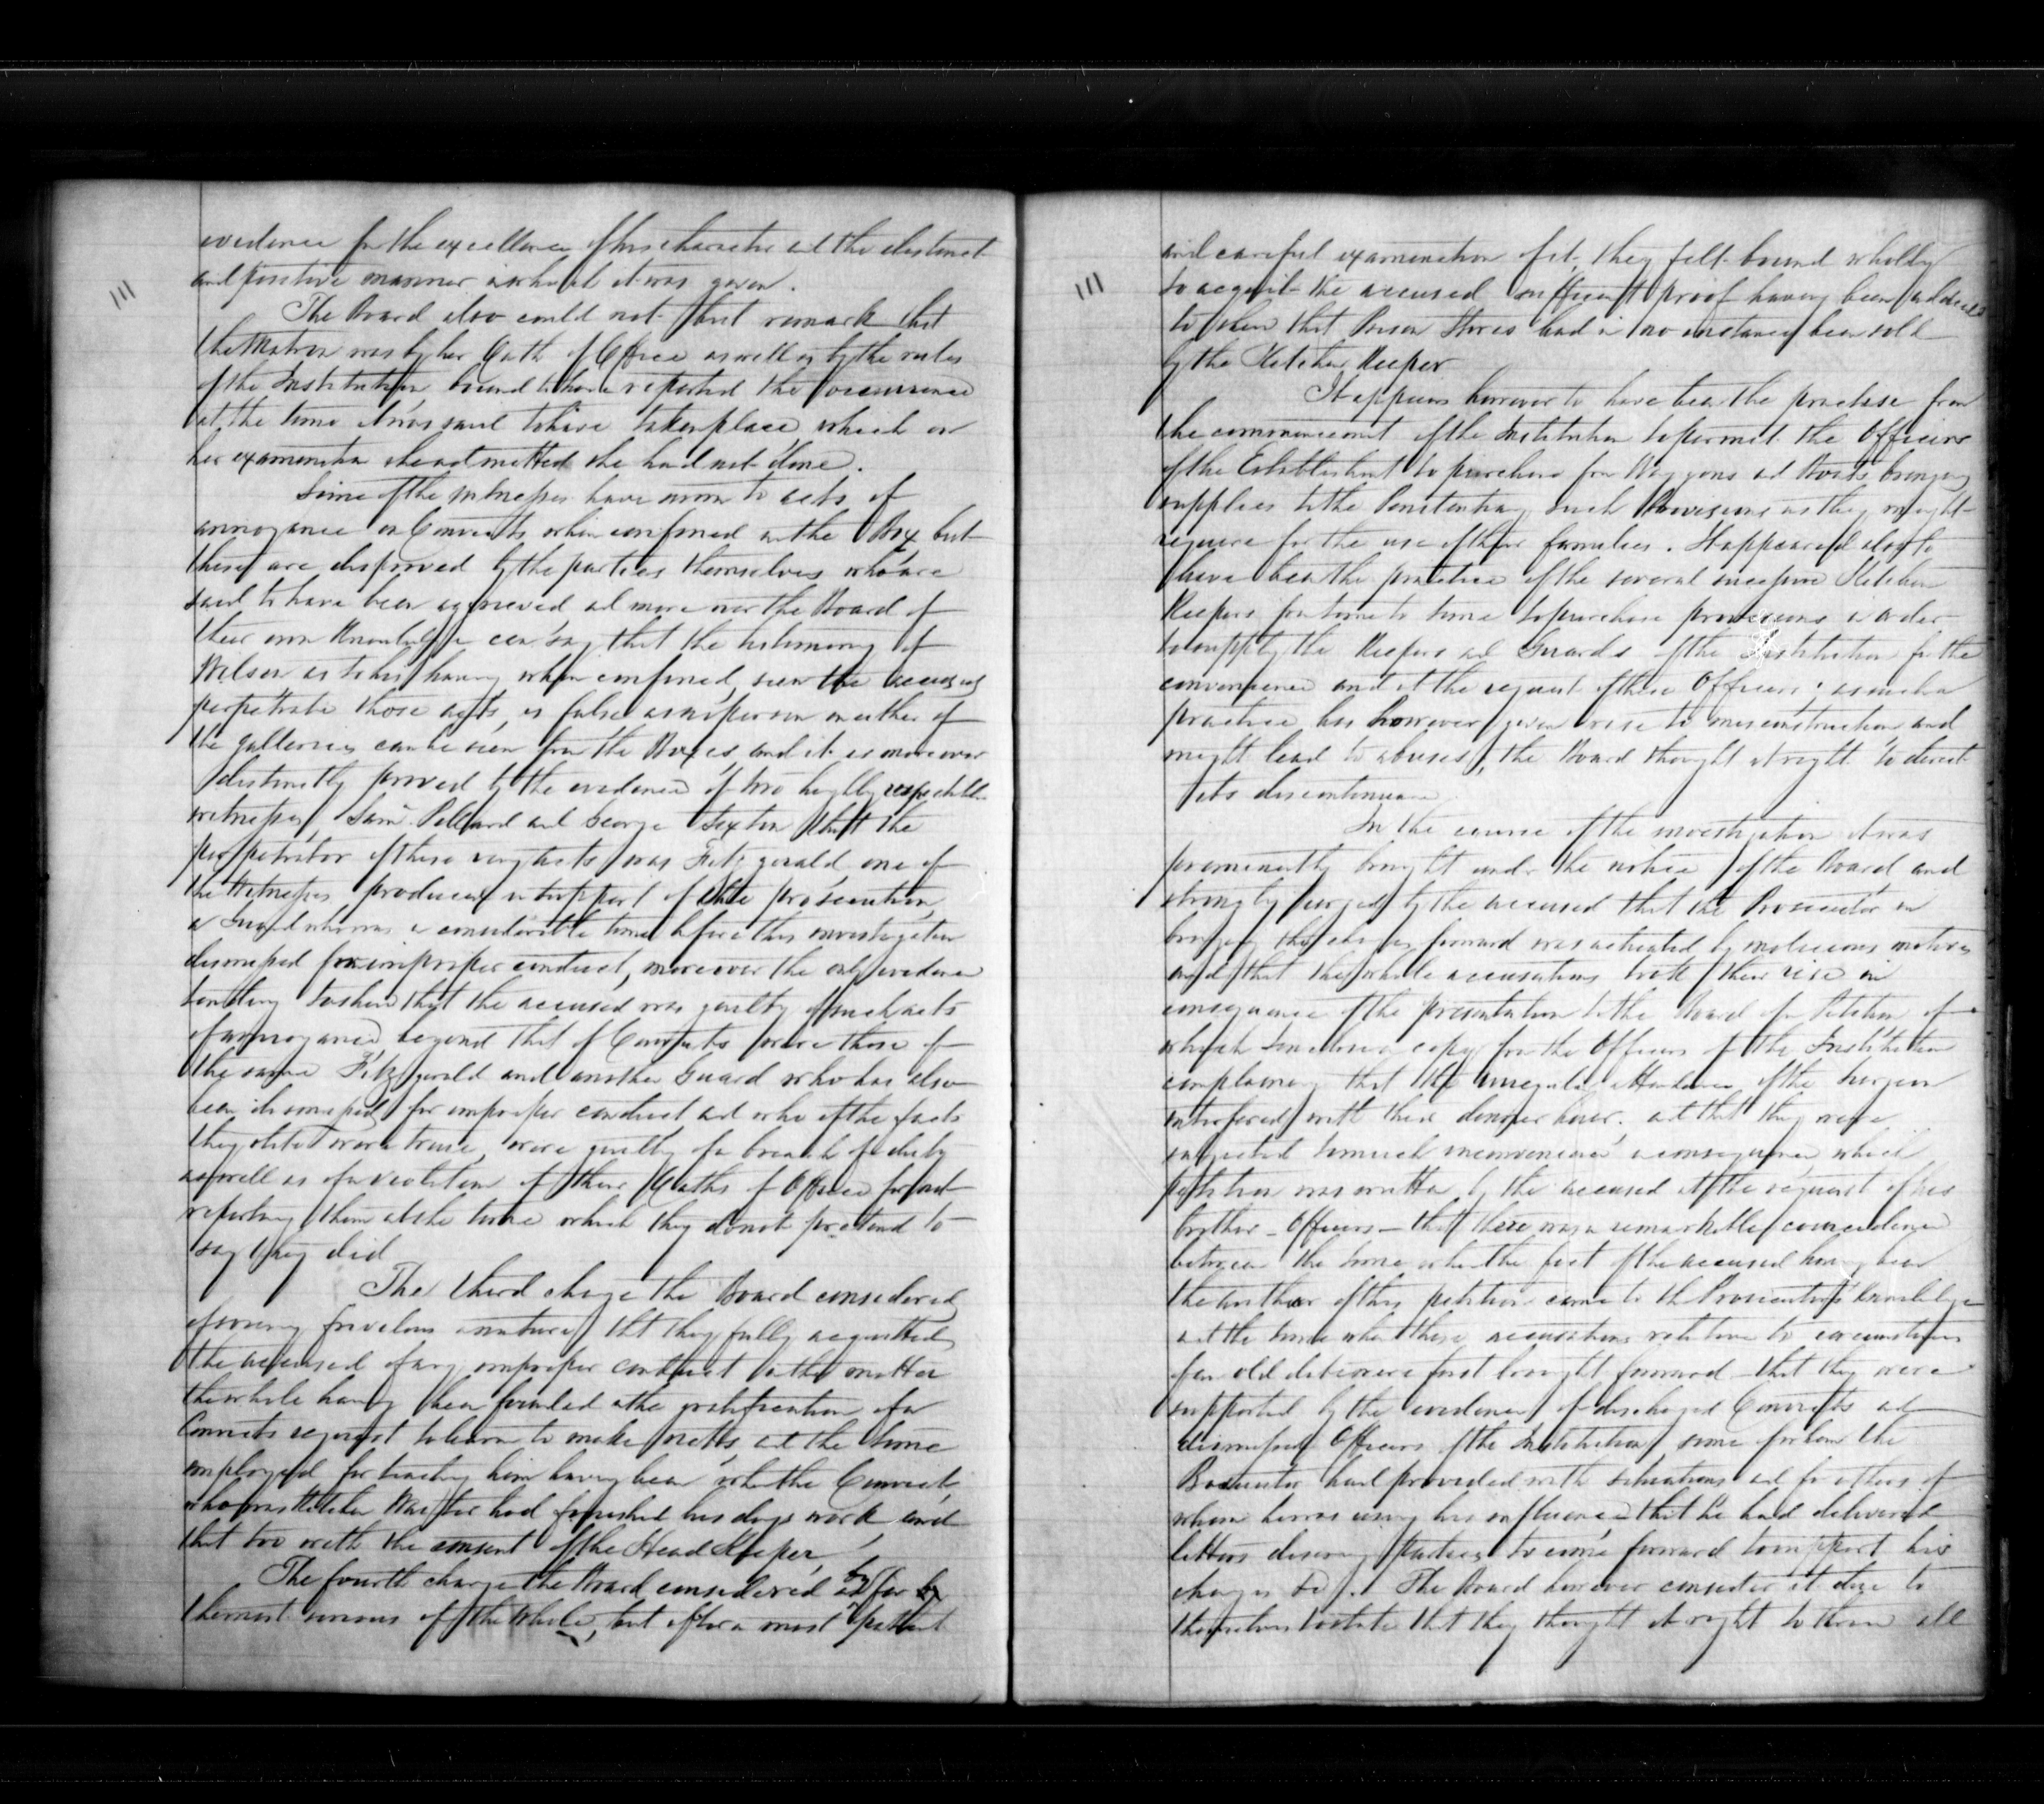 111
evidence for the excellence of his character and the distinct
and positive manner in which it was given.
The Board also could not but remark that
the Matron was by her Oath of Office as well as by the rules
of the Institution, bound to have reported the occurrence
at the time it was said to have taken place, which on
her examination she admitted she had not done.
Some of the witnesses have sworn to acts of
annoyance on Convicts when confined in the Box but
these are disproved by the parties themselves who are
said to have been aggrieved and more over the Board of
their own Knowledge can say that the testimony of
Wilson as to his having when confined, seen the accused
perpetrate those acts, is false as no person on either of
the galleries can be seen from the Boxes, and it is moreover
distinctly proved by the evidence of two highly respectable
witnesses, Saml. Pollard and George Sexton that the
perpetrator of these very acts was Fitzgerald, one of
the Witnesses produced in support of the prosecution,
a Guard who was a considerable time before this investigation
dismissed for improper conduct, moreover the only evidence
tending to shew that the accused was guilty of such acts
of annoyance beyond that of Convicts were those of
the same Fitzgerald and another Guard who has also
been dismissed for improper conduct and who if the facts
they state were true, were guilty of a breach of duty
as well as of a violation of their Oaths of Office for not
reporting them at the time which they do not pretend to
say they did
The third charge the Board considered
of so very frivolous a nature that they fully acquitted
the accused of any improper conduct in the matter
the whole having been founded in the gratification of a
Convicts request to learn to make netts and the time
employed for teaching him having been when the Convict,
who was Kitchen Waiter had finished his days work and
that too with the consent of the Head Keeper,
The fourth charge the Board considered as by far
the most serious of the whole, but after a most patient
111
and careful examination of it, they felt bound wholly
to acquit the accused sufficient proof having been adduced
to shew that Prison Stores had in no instance been sold
by the Kitchen Keeper
It appears however to have been the practise from
the commencement of the Institution to permit the Officers
of the Establishment to purchase from Waggons and Boats bringing
supplies to the Penitentiary such Provisions as they might
require for the use of their families. It appeared also to
have been the practice of the several successive Kitchen
Keepers from time to time to purchase provisions in order
to supply the Keepers and Guards of the Institution for the
convenience and at the request of these Officers; as such a
practice has however given rise to misconstruction and
might lead to abuses, the Board thought it right to direct
its discontinuance.
In the course of the investigation it was
prominently brought under the notice of the Board and
strongly urged by the accused that the Prosecutor in
bringing the charges forward was actuated by malicious motives
and that the whole accusations took their rise in
consequence of the presentation to the Board of a Petition of
which I enclose a copy from the Officers of the Institution
complaining that the irregular attendance of the Surgeon
interfered with their dinner hour. and that they were
subjected to much inconvenience in consequence, which
petition was written by the accused at the request of his
brother-Officers - that there was a remarkable coincidence
between the time when the fact of the accused having been
the author of this petition came to the Prosecutor's knowledge
and the time when these accusations relative to circumstances
of an old date were first brought forward - that they were
supported by the evidence of discharged Convicts and
dismissed Officers of the Institution, some of whom the
Prosecutor had provided with situations and for others of
whom he was using his influence, that he had delivered
letters desiring parties to come forward to support his
charges &c. The Board however consider it due to
themselves to state that they thought it right to throw all